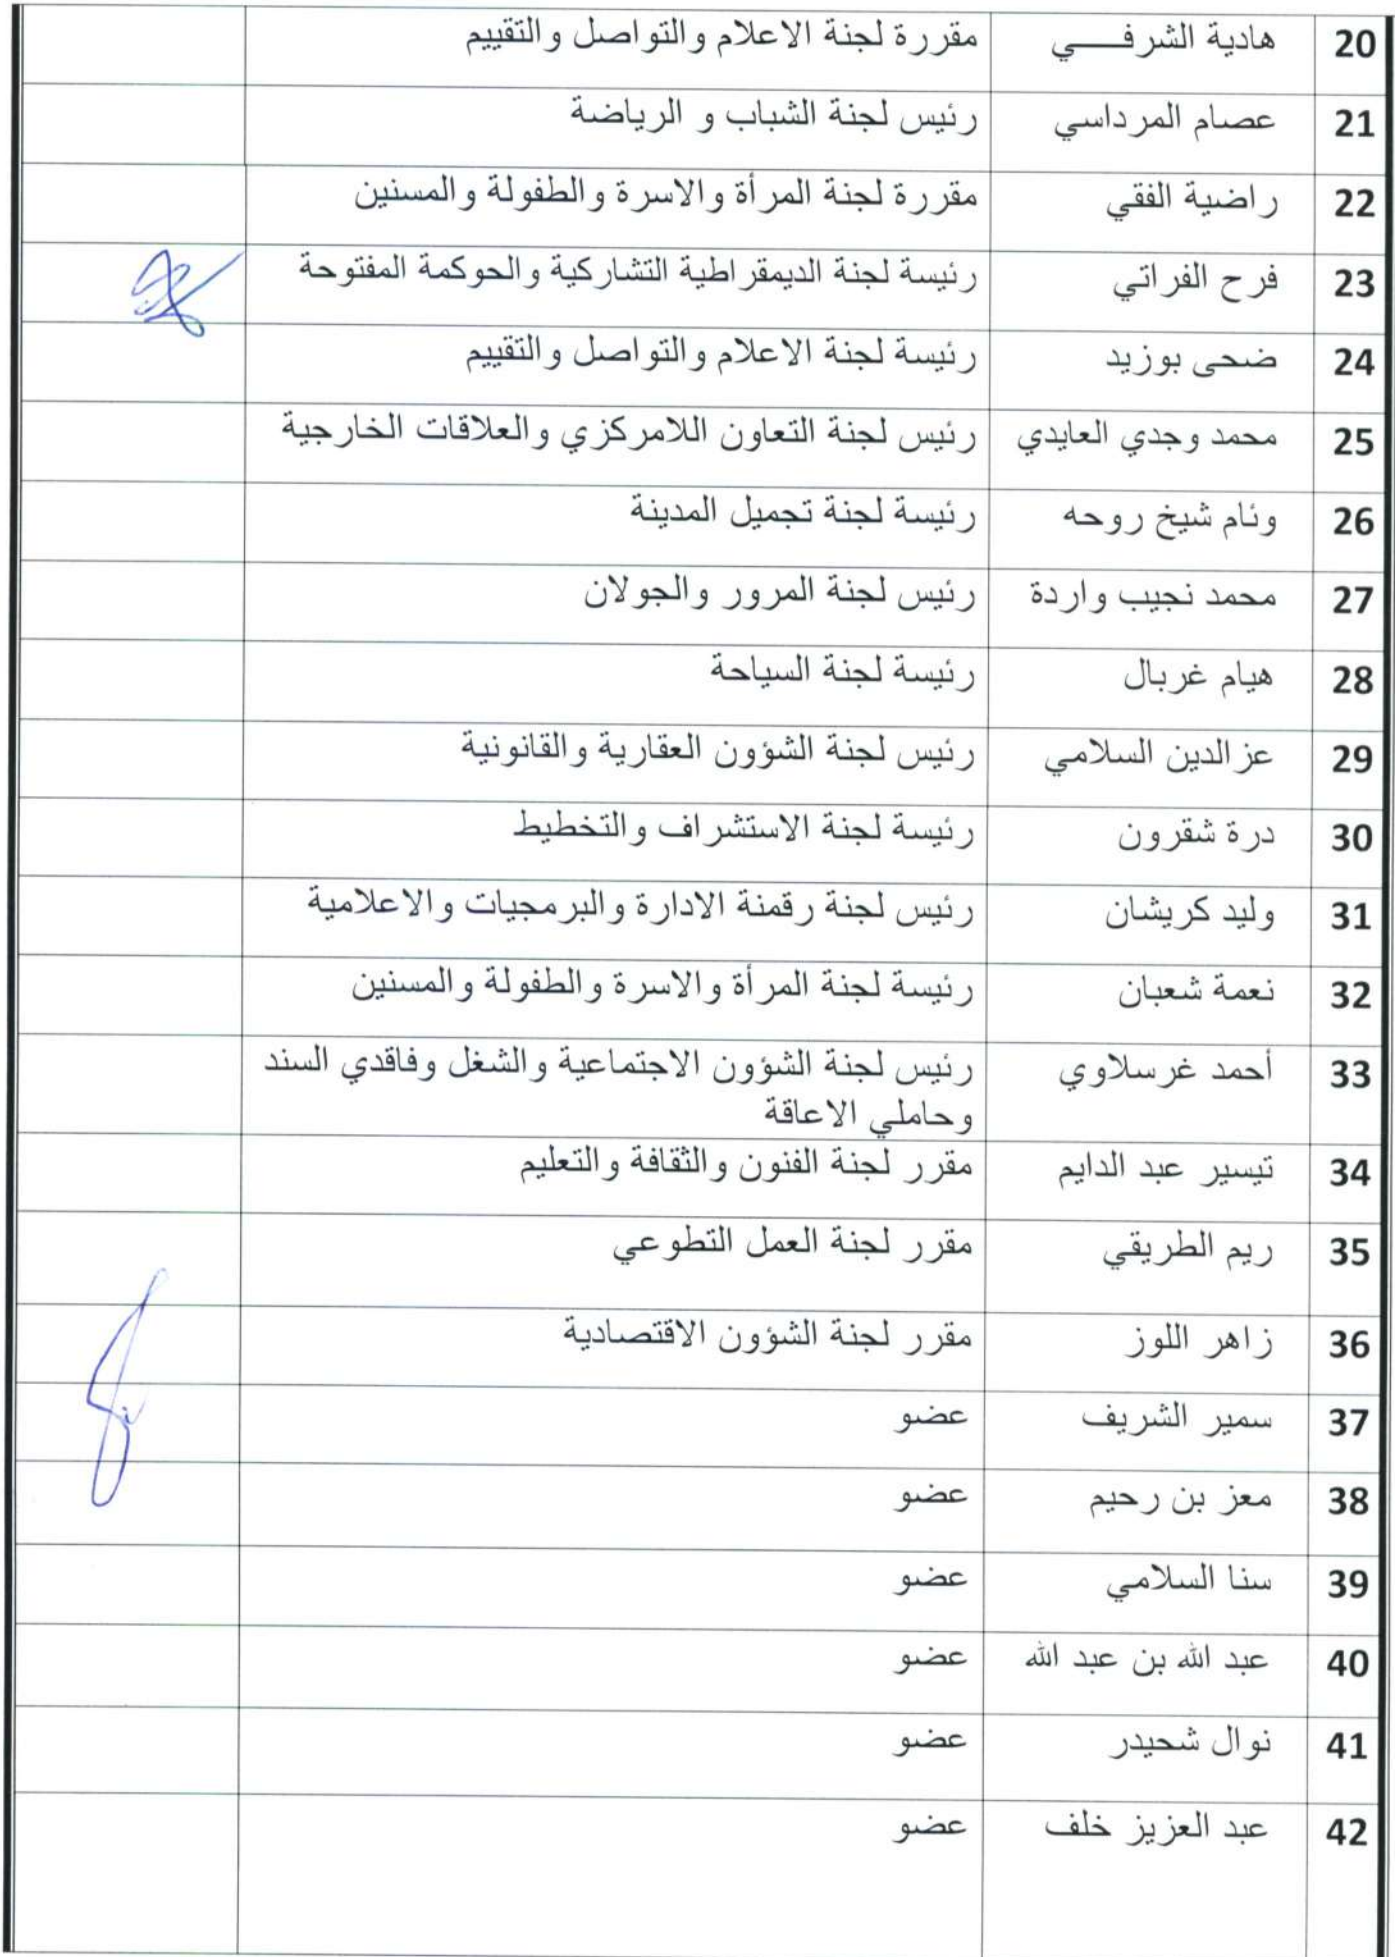 20 هادية الشرفـــــي مقررة لجنة الاعلام والتواصل والتقييم
21 عصام المرداسي رئيس لجنة الشباب و الرياضة
22 راضية الفقي مقررة لجنة المرأة والاسرة والطفولة والمسنين
23 فرح الفراتي رئيسة لجنة الديمقراطية التشاركية والحوكمة المفتوحة
24 ضحى بوزيد رئيسة لجنة الاعلام والتواصل والتقييم
25 محمد وجدي العايدي رئيس لجنة التعاون اللامركزي والعلاقات الخارجية
26 وئام شيخ روحه رئيسة لجنة تجميل المدينة
27 محمد نجيب واردة رئيس لجنة المرور والجولان
28 هيام غربال رئيسة لجنة السياحة
29 عزالدين السلامي رئيس لجنة الشؤون العقارية والقانونية
30 درة شقرون رئيسة لجنة الاستشراف والتخطيط
31 وليد كريشان رئيس لجنة رقمنة الادارة والبرمجيات والاعلامية
32 نعمة شعبان رئيسة لجنة المرأة والاسرة والطفولة والمسنين
33 أحمد غرسلاوي رئيس لجنة الشؤون الاجتماعية والشغل وفاقدي السند
وحاملي الاعاقة
34 تيسير عبد الدايم مقرر لجنة الفنون والثقافة والتعليم
35 ريم الطريقي مقرر لجنة العمل التطوعي
36 زاهر اللوز مقرر لجنة الشؤون الاقتصادية
37 سمير الشريف عضو
38 معز بن رحيم عضو
39 سنا السلامي عضو
40 عبد الله بن عبد الله عضو
41 نوال شحيدر عضو
42 عبد العزيز خلف عضو